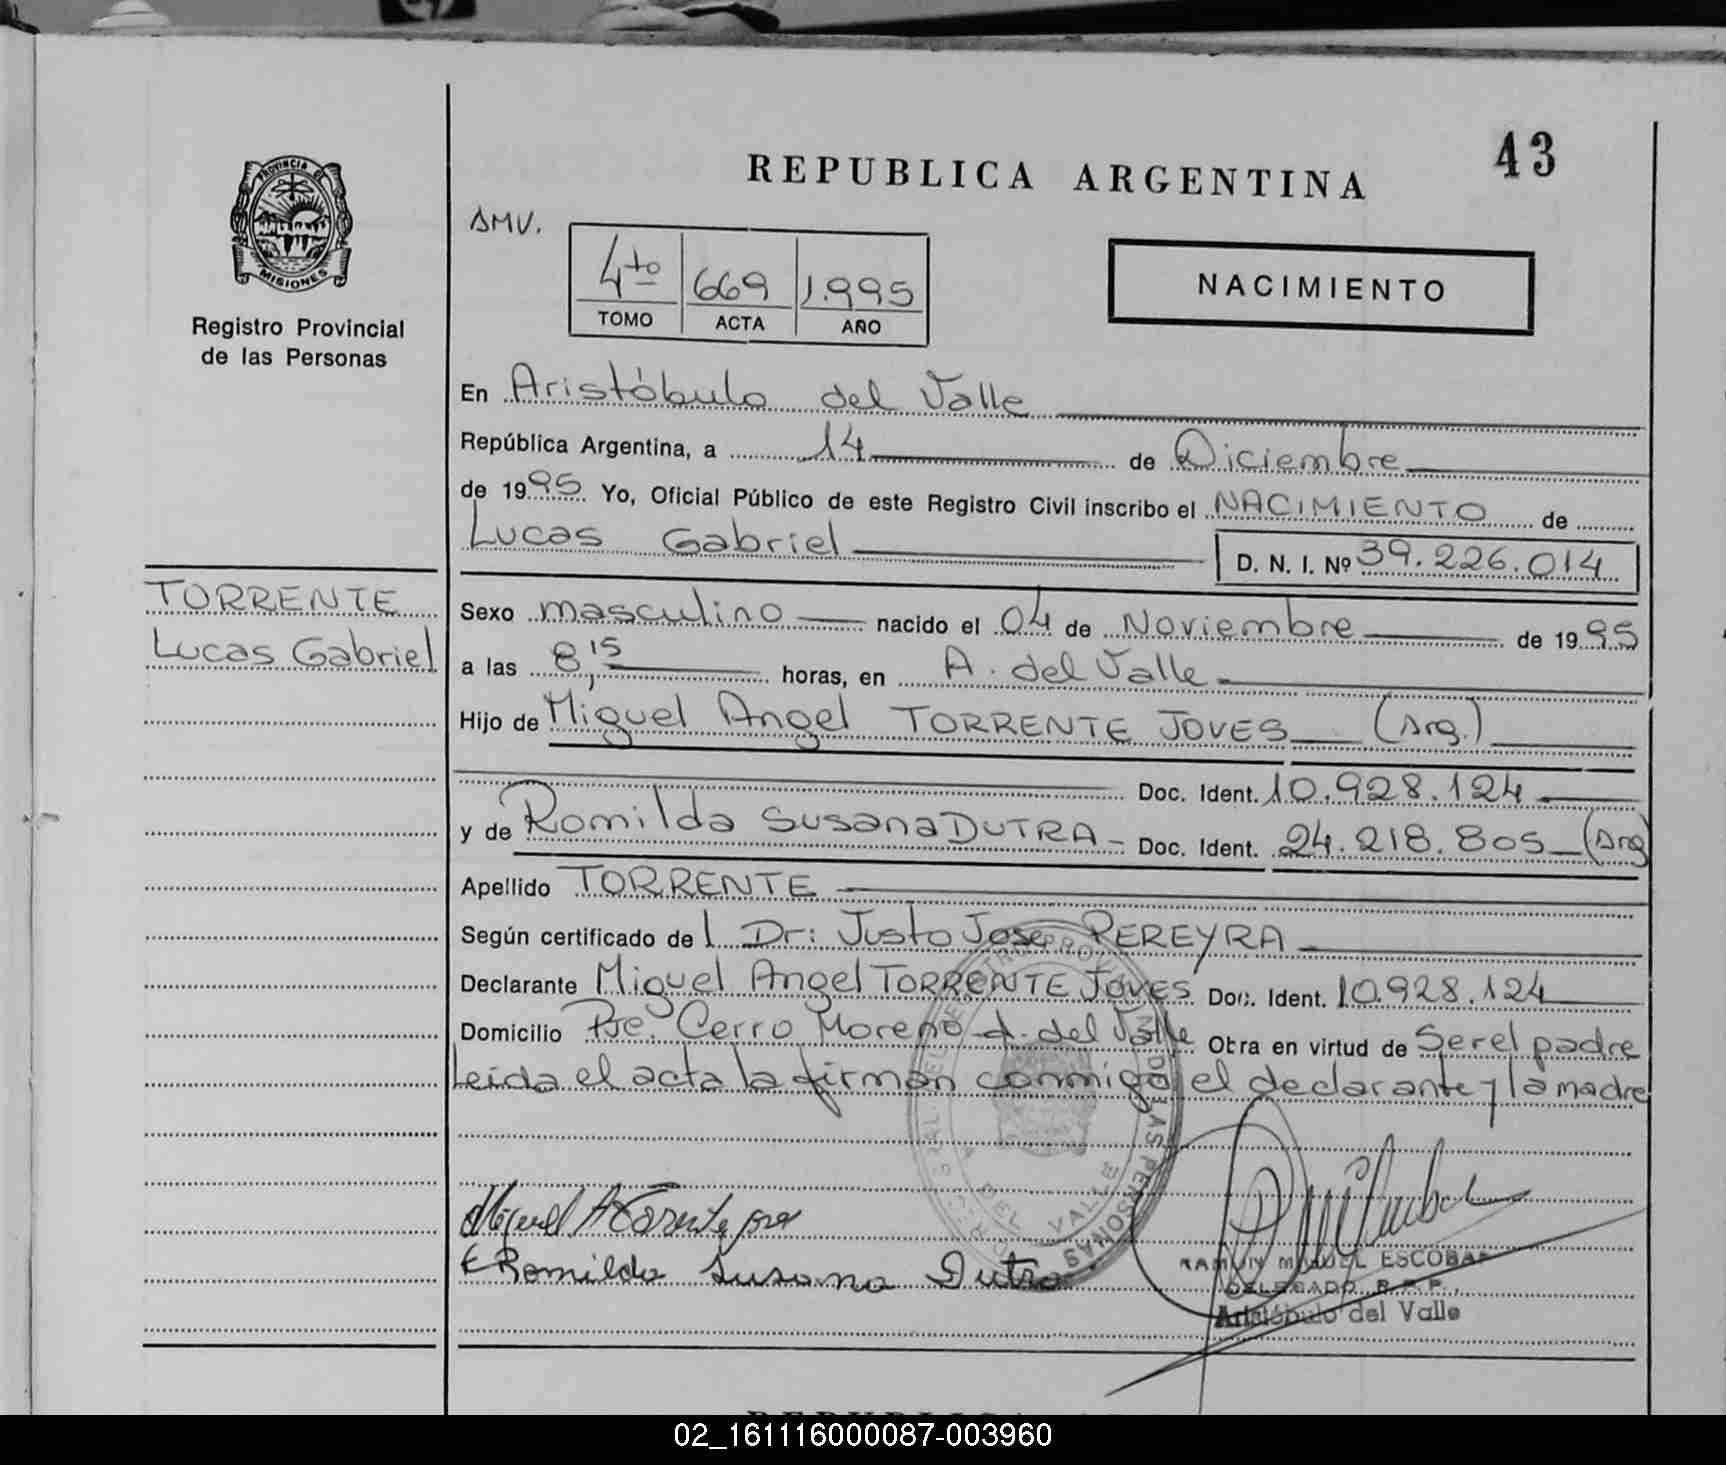 43
REPUBLICA ARGENTINA
PROVINCIA DE
MISIONES
Registro Provincial
de las Personas
AMV.
4to 669 1.995
TOMO ACTA AÑO
NACIMIENTO
En Aristóbulo del Valle
República Argentina, a 14 de Diciembre
de 1995 Yo, Oficial Público de este Registro Civil inscribo el NACIMIENTO de
Lucas Gabriel D. N. I. Nº 39.226.014
TORRENTE
Lucas Gabriel
Sexo masculino nacido el 04 de Noviembre de 1995
a las 8,15 horas, en A. del Valle
Hijo de Miguel Angel TORRENTE JOVES (Arg.)
Doc. Ident. 10.928.124
y de Romilda Susana DUTRA - Doc. Ident. 24.218.805 (Arg
Apellido TORRENTE
Según certificado de l Dr: Justo Jose PEREYRA
Declarante Miguel Angel TORRENTE JOVES Doc. Ident. 10.928.124
Domicilio Pje. Cerro Moreno A. del Valle Obra en virtud de Ser el padre
Leida el acta la firman conmigo el declarante y la madre
Miguel A Torrente
Romilda Susana Dutra
RAMON MIGUEL ESCOBAR
DELEGADO R.P.P.
Aristóbulo del Valle
02_161116000087-003960